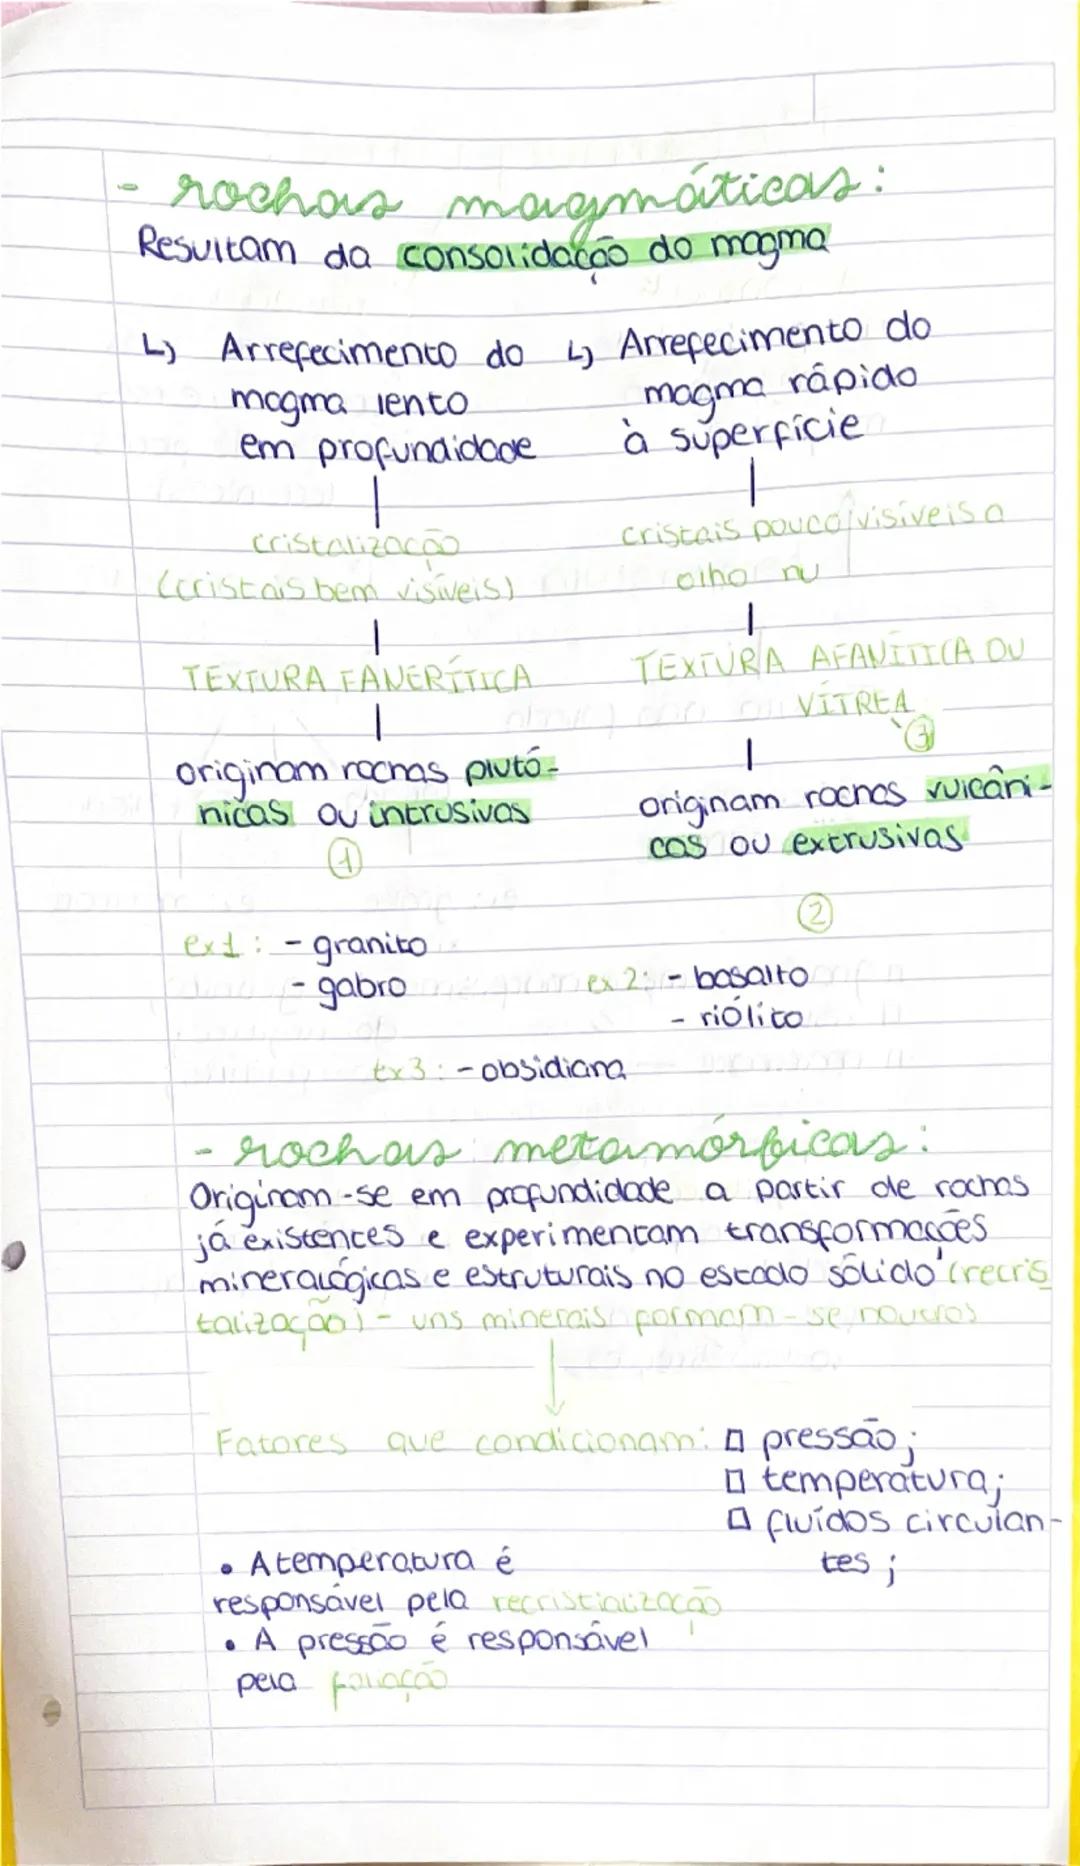 - rochas magmáticas:
Resultam da consolidação do magma
↳ Arrefecimento do
magma lento
em profundidade
|
cristalização
(cristais bem visíveis)
|
TEXTURA FANERÍTICA
|
originam rochas plutó-
nicas ou intrusivas
①
ex1: - granito
- gabro
↳ Arrefecimento do
magma rápido
à superfície
|
cristais pouco visíveis a
olho nu
|
TEXTURA AFANÍTICA OU
VÍTREA
③
|
originam rochas vulcâni-
cas ou extrusivas
②
ex 2: - basalto
- riólito
Ex3: - obsidiana
- rochas metamórficas:
Originam-se em profundidade a partir de rochas
já existentes e experimentam transformações
mineralógicas e estruturais no estado sólido (recris
talização) - uns minerais formam-se noutros
↓
Fatores que condicionam: □ pressão;
□ temperatura;
□ fluídos circulan-
tes;
• A temperatura é
responsável pela recristialização
• A pressão é responsável
pela foliação